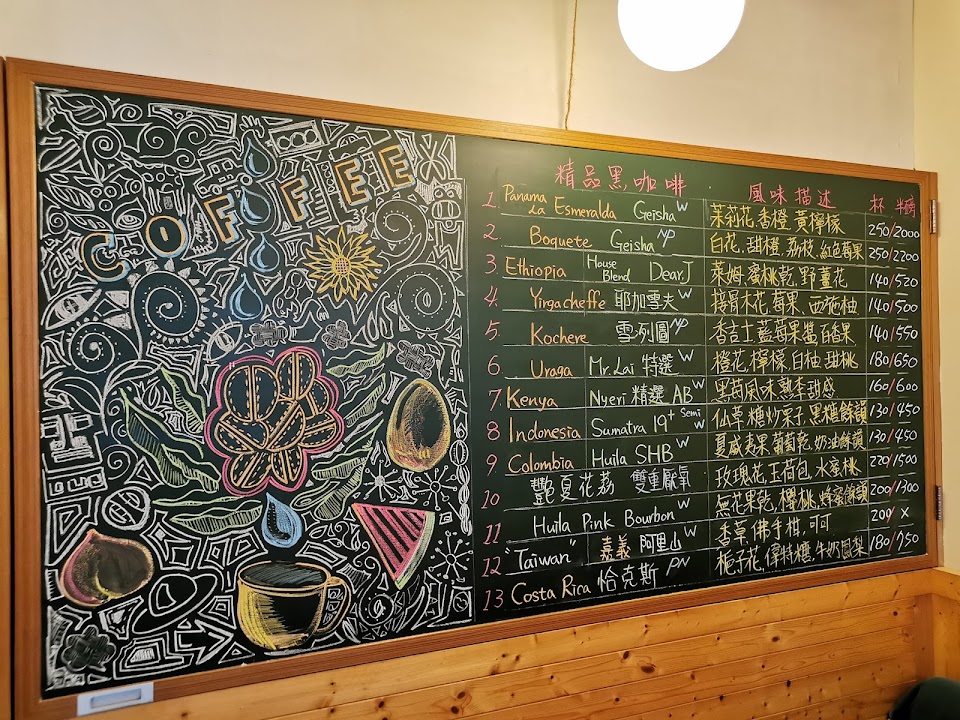 COFFEE
精品黑咖啡 風味描述 杯 半磅
1. Panama La Esmeralda Geisha W 茉莉花.香橙.黃檸檬 250/2000
2. Boquete Geisha NP 白花.甜橙.荔枝.紅色莓果 250/2200
3. Ethiopia House Blend Dear.J 萊姆.蜜桃乾.野薑花 140/520
4. Yirgacheffe 耶加雪夫 W 接骨木花.莓果.西施柚 140/500
5. Kochere 雪列圖 NP 香吉士.藍莓果醬.百香果 140/550
6 Uraga Mr. Lai 特選 W 橙花.檸檬.白柚.甜桃 180/650
7 Kenya Nyeri 精選 AB W 黑莓風味熟季甜感 160/600
8 Indonesia Sumatra 19+ Semi W 仙草.糖炒栗子.黑糖餘韻 130/450
9 Colombia Huila SHB W 夏威夷果.葡萄乾.奶油餘韻 130/450
10 艷夏花荔 雙重厭氧 玫瑰花.玉荷包.水蜜桃 220/1500
11 Huila Pink Bourbon W 無花果乾.櫻桃.蜂蜜餘韻 200/1300
12 "Taiwan" 嘉義 阿里山 W 香草.佛手柑.可可 200/x
13 Costa Rica 恰克斯 PN 梔子花.偉特糖.牛奶鳳梨 180/750